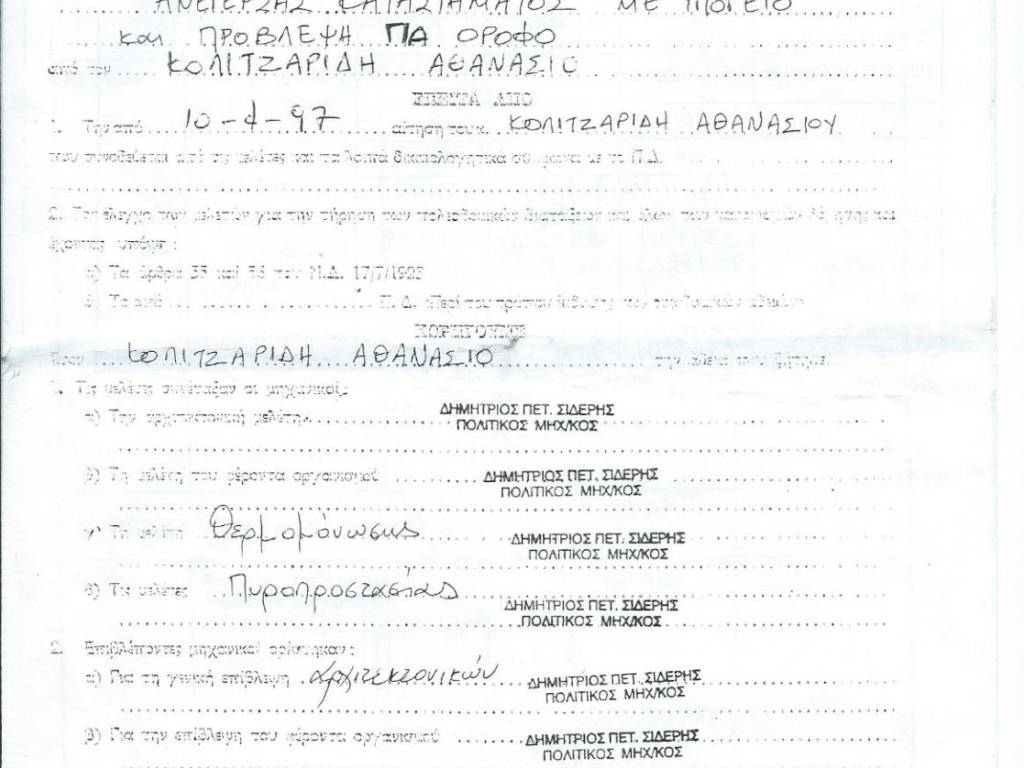 ΑΝΕΓΕΡΣΗΣ ΚΑΤΑΣΤΗΜΑΤΟΣ ΜΕ ΥΠΟΓΕΙΟ
και ΠΡΟΒΛΕΨΗ ΓΙΑ ΟΡΟΦΟ
από τον ΚΟΛΙΤΖΑΡΙΔΗ ΑΘΑΝΑΣΙΟ
ΥΣΤΕΡΑ ΑΠΟ
1. Την από 10-4-97 αίτηση του κ. ΚΟΛΙΤΖΑΡΙΔΗ ΑΘΑΝΑΣΙΟΥ
που συνοδεύεται από τις μελέτες και τα λοιπά δικαιολογητικά σύμφωνα με το Π.Δ.
2. Τον έλεγχο των μελετών για την τήρηση των πολεοδομικών διατάξεων και
έχοντας υπόψη :
α) Τα άρθρα 55 και 56 του Ν.Δ. 17/7/1923
β) Το από Π.Δ. «Περί του τρόπου εκδόσεως των οικοδομικών αδειών»
ΧΟΡΗΓΟΥΜΕ
ΚΟΛΙΤΖΑΡΙΔΗ ΑΘΑΝΑΣΙΟ την άδεια που ζήτησε.
1. Τις μελέτες συνέταξαν οι μηχανικοί:
α) Την αρχιτεκτονική μελέτη ΔΗΜΗΤΡΙΟΣ ΠΕΤ. ΣΙΔΕΡΗΣ
ΠΟΛΙΤΙΚΟΣ ΜΗΧ/ΚΟΣ
β) Τη μελέτη του φέροντα οργανισμού ΔΗΜΗΤΡΙΟΣ ΠΕΤ. ΣΙΔΕΡΗΣ
ΠΟΛΙΤΙΚΟΣ ΜΗΧ/ΚΟΣ
γ) Τη μελέτη Θερμομόνωσης ΔΗΜΗΤΡΙΟΣ ΠΕΤ. ΣΙΔΕΡΗΣ
ΠΟΛΙΤΙΚΟΣ ΜΗΧ/ΚΟΣ
δ) Τις μελέτες Πυροπροστασίας ΔΗΜΗΤΡΙΟΣ ΠΕΤ. ΣΙΔΕΡΗΣ
ΠΟΛΙΤΙΚΟΣ ΜΗΧ/ΚΟΣ
2. Επιβλέποντες μηχανικοί ορίστηκαν :
α) Για τη γενική επίβλεψη Αρχιτεκτονικών ΔΗΜΗΤΡΙΟΣ ΠΕΤ. ΣΙΔΕΡΗΣ
ΠΟΛΙΤΙΚΟΣ ΜΗΧ/ΚΟΣ
β) Για την επίβλεψη του φέροντα οργανισμού ΔΗΜΗΤΡΙΟΣ ΠΕΤ. ΣΙΔΕΡΗΣ
ΠΟΛΙΤΙΚΟΣ ΜΗΧ/ΚΟΣ